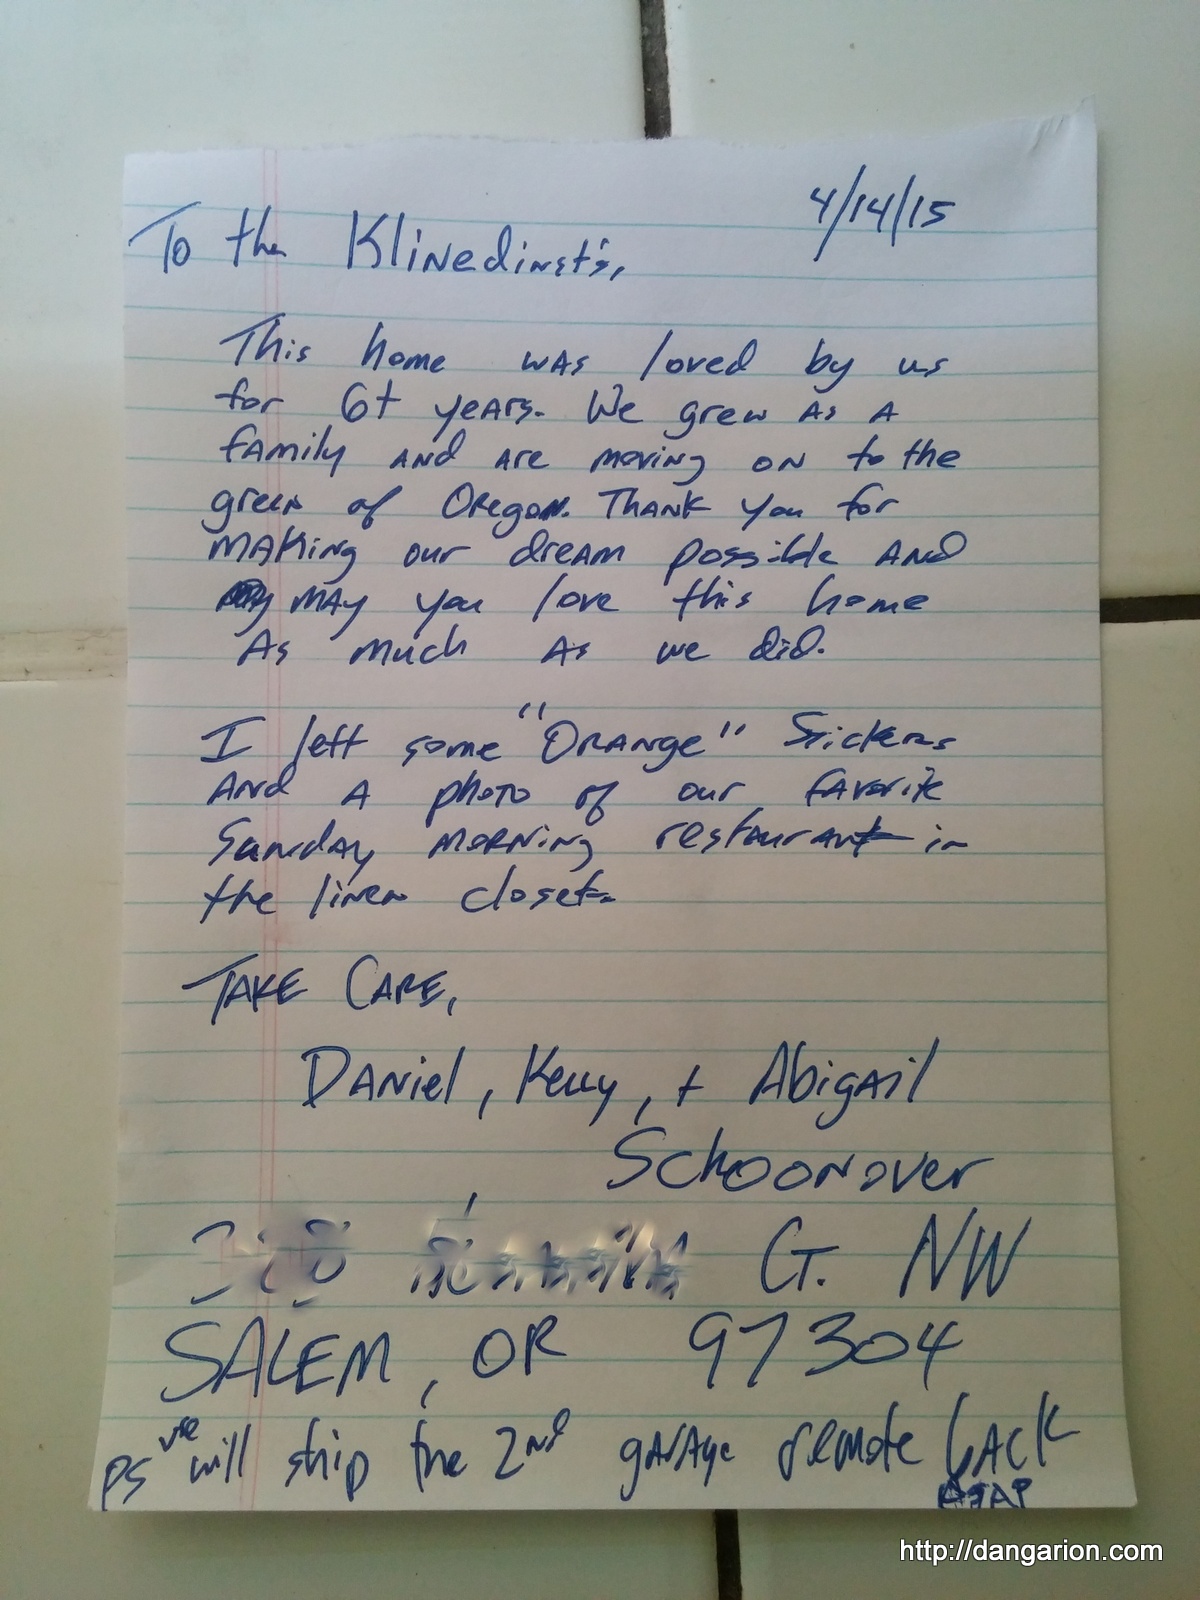 4/14/15
To the Klinedinst's,
This home was loved by us
for 6+ years. We grew as a
family and are moving on to the
green of Oregon. Thank you for
making our dream possible and
may you love this home
as much as we did.
I left some "Orange" Stickers
and a photo of our favorite
Sunday morning restaurant in
the linen closet.
Take Care,
Daniel, Kelly, + Abigail
Schoonover
Ct. NW
SALEM, OR 97304
PS we will ship the 2nd garage remote back
ASAP
http://dangarion.com